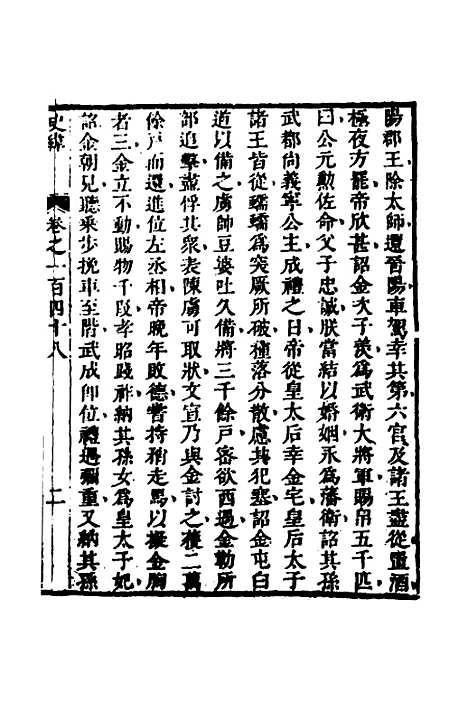 陽郡王除太師還晉陽車駕幸其第六宮及諸王盡從置酒
極夜方罷帝欣甚詔金次子羨爲武衛大將軍賜帛五千匹
曰公元勳佐命父子忠誠朕當結以婚姻永爲藩衛詔其孫
武都尚義寧公主成禮之日帝從皇太后幸金宅皇后太子
諸王皆從蠕蠕爲突厥所破種落分散慮其犯塞詔金屯白
道以備之虜帥豆婆吐久備將三千餘戸密欲西過金勒所
部追擊盡俘其衆表陳虜可取狀文宣乃與金討之獲二萬
餘戸而還進位左丞相帝晚年敗德嘗持矟走馬以擬金胸
者三金立不動賜物千段孝昭踐祚納其孫女爲皇太子妃
詔金朝見聽乘步挽車至階武成即位禮遇彌重又納其孫
史緯
卷之一百四十八
二